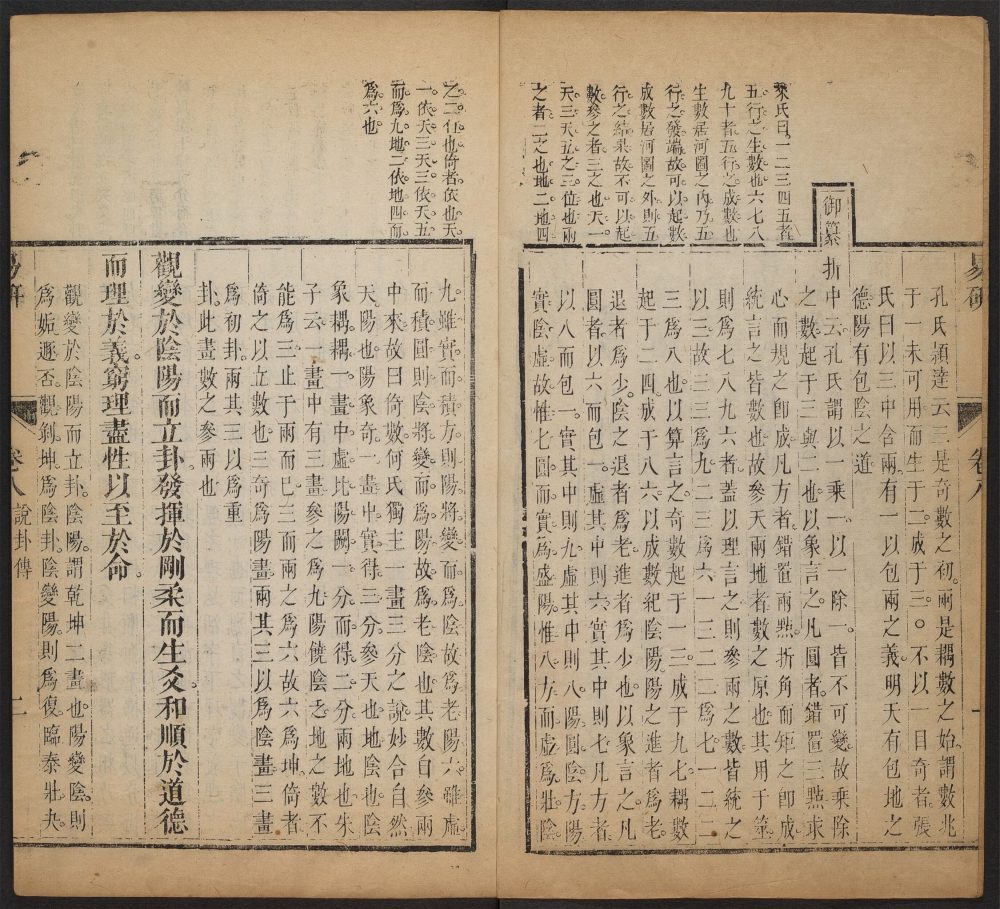 朱氏曰一二三四五者
五行之生數也六七八
九十者五行之成數也
生數居河圖之內乃五
行之發端故可以起數
成數居河圖之外則五
行之結果故不可以起
數參之者三之也天一
天三天五之三位也兩
之者二之也地二地四
孔氏穎達云三是奇數之初兩是耦數之始謂數兆
于一未可用而生于二成于三〇不以一目奇者張
氏曰以三中含兩有一以包兩之義明天有包地之
德陽有包陰之道
御纂折中云孔氏謂以一乘一以一除一皆不可變故乘除
之數起于三與二也以象言之凡圓者錯置三㸃求
心而規之卽成凡方者錯置兩㸃折角而矩之卽成
統言之皆數也故參天兩地者數之原也其用于筮
則爲七八九六者蓋以理言之則參兩之數皆統之
以三故三三爲九三二爲六一二二爲七一二二
三爲八也以算言之奇數起于一三成于九七耦數
起于二四成于八六以成數紀陰陽之進者爲老
退者爲少陰之退者爲老進者爲少也以象言之凡
圓者以六而包一虛其中則六實其中則七凡方者
以八而包一實其中則九虛其中則八陽圓陰方陽
實陰虛故惟七圓而實爲盛陽惟八方而虛爲壯陰
之二位也倚者依也天
一依天三天三依天五
而爲九地二依地四而
爲六也
九雖實而積方則陽將變而爲陰故爲老陽六雖虛
而積圓則陰將變而爲陽故爲老陰也其數自參兩
中來故曰倚數何氏獨主一畫三分之說妙合自然
天陽也陽象奇一畫中實得三分參天也地陰也陰
象耦耦一畫中虛比陽闕一分而得二分兩地也朱
子云一畫中有三畫參之爲九陽饒陰乏地之數不
能爲三止于兩而已三而兩之爲六故六爲坤倚者
倚之以立數也三奇爲陽畫兩其三以爲陰畫三畫
爲初卦兩其三以爲重
卦此畫數之參兩也
觀變於陰陽而立卦發揮於剛柔而生爻和順於道德
而理於義窮理盡性以至於命
觀變於陰陽而立卦陰陽謂乾坤二畫也陽變陰則
爲姤遯否觀剝坤爲陰卦陰變陽則爲復臨泰壯夬
卷八
說卦傳
二